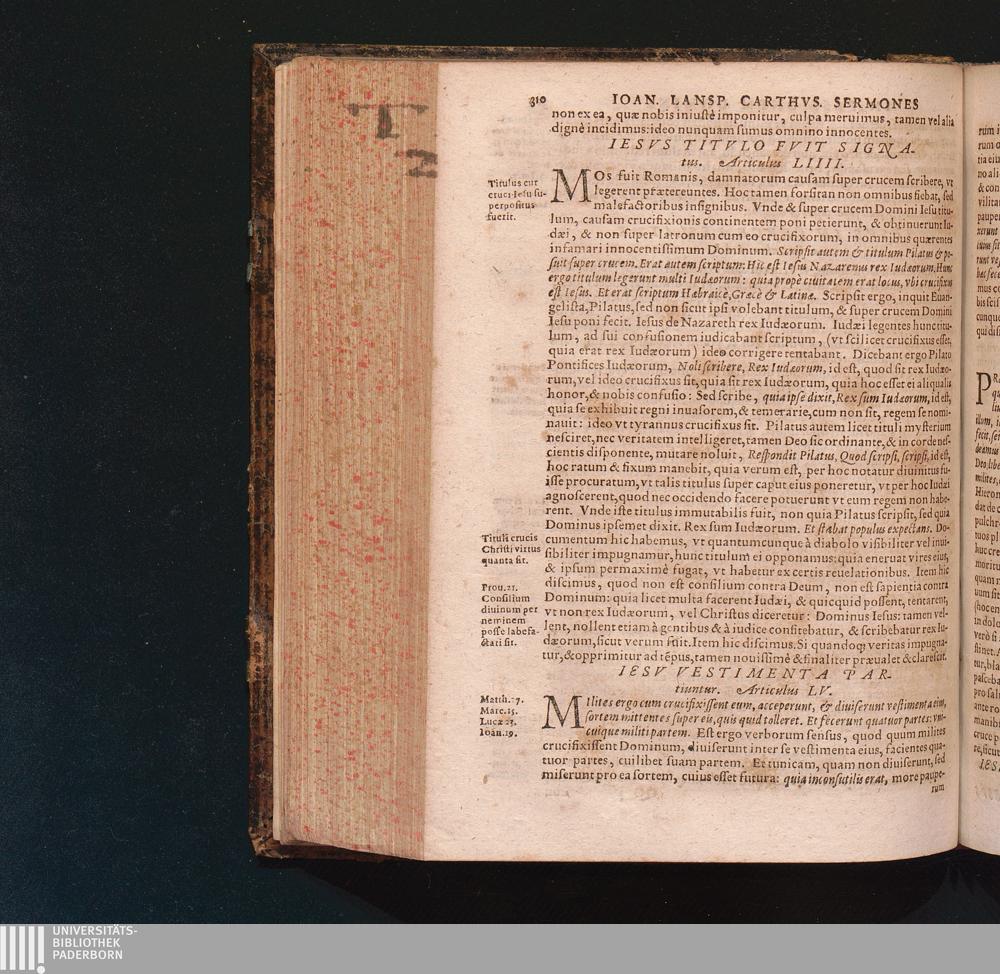 310 IOAN. LANSP. CARTHVS. SERMONES
non ex ea, quæ nobis iniustè imponitur, culpa meruimus, tamen vel alia
dignè incidimus: ideo nunquam sumus omnino innocentes.
IESVS TITVLO FVIT SIGNA-
tus. Articulus LIIII.
Titulus cur
cruci Iesu su-
perpositus
fuerit.
MOs fuit Romanis, damnatorum causam super crucem scribere, vt
legerent prætereuntes. Hoc tamen forsitan non omnibus fiebat, sed
malefactoribus insignibus. Vnde & super crucem Domini Iesu titu-
lum, causam crucifixionis continentem poni petierunt, & obtinuerunt Iu-
dæi, & non super latronum cum eo crucifixorum, in omnibus quærentes
infamari innocentissimum Dominum. Scripsit autem & titulum Pilatus & po-
suit super crucem. Erat autem scriptum: Hic est Iesus Nazarenus rex Iudæorum. Hunc
ergo titulum legerunt multi Iudæorum: quia propè ciuitatem erat locus, vbi crucifixus
est Iesus. Et erat scriptum Hæbraicè, Græcè & Latinæ. Scripsit ergo, inquit Euan-
gelista, Pilatus, sed non sicut ipsi volebant titulum, & super crucem Domini
Iesu poni fecit. Iesus de Nazareth rex Iudæorum. Iudæi legentes hunc titu-
lum, ad sui confusionem iudicabant scriptum, (vt scilicet crucifixus esset,
quia erat rex Iudæorum) ideo corrigere tentabant. Dicebant ergo Pilato
Pontifices Iudæorum, Noli scribere, Rex Iudæorum, id est, quod sit rex Iudæo-
rum, vel ideo crucifixus sit, quia sit rex Iudæorum, quia hoc esset ei aliqualis
honor, & nobis confusio: Sed scribe, quia ipse dixit, Rex sum Iudæorum, id est,
quia se exhibuit regni inuasorem, & temerarie, cum non sit, regem se nomi-
nauit: ideo vt tyrannus crucifixus sit. Pilatus autem licet tituli mysterium
nesciret, nec veritatem intelligeret, tamen Deo sic ordinante, & in corde nes-
cientis disponente, mutare noluit, Respondit Pilatus, Quod scripsi, scripsi, id est,
hoc ratum & fixum manebit, quia verum est, per hoc notatur diuinitus fu-
isse procuratum, vt talis titulus super caput eius poneretur, vt per hoc Iudæi
agnoscerent, quod nec occidendo facere potuerunt vt eum regem non habe-
rent. Vnde iste titulus immutabilis fuit, non quia Pilatus scripsit, sed quia
Dominus ipsemet dixit. Rex sum Iudæorum. Et stabat populus expectans. Do-
Tituli crucis
Christi virtus
quanta sit.
cumentum hic habemus, vt quantumcunque à diabolo visibiliter vel inui-
sibiliter impugnamur, hunc titulum ei opponamus: quia eneruat vires eius,
& ipsum permaximè fugat, vt habetur ex certis reuelationibus. Item hic
Prou. 21.
Consilium
diuinum per
neminem
posse labefa-
ctari sit.
discimus, quod non est consilium contra Deum, non est sapientia contra
Dominum: quia licet multa facerent Iudæi, & quicquid possent, tentarent,
vt non rex Iudæorum, vel Christus diceretur: Dominus Iesus: tamen vel-
lent, nollent etiam à gentibus & à iudice confitebatur, & scribebatur rex Iu-
dæorum, sicut verum fuit. Item hic discimus. Si quandoq; veritas impugna-
tur, & opprimitur ad tẽpus, tamen nouissimè & finaliter præualet & clarescit.
IESV VESTIMENTA PAR-
tiuntur. Articulus LV.
Matth. 27.
Marc. 15.
Lucæ 23.
Ioan. 19.
MIlites ergo cum crucifixissent eum, acceperunt, & diuiserunt vestimenta eius,
sortem mittentes super eis, quis quid tolleret. Et fecerunt quatuor partes: vni-
cuique militi partem. Est ergo verborum sensus, quod quum milites
crucifixissent Dominum, diuiserunt inter se vestimenta eius, facientes qua-
tuor partes, cuilibet suam partem. Et tunicam, quam non diuiserunt, sed
miserunt pro ea sortem, cuius esset futura: quia inconsutilis erat, more paupe-
rum
UNIVERSITÄTS-
BIBLIOTHEK
PADERBORN